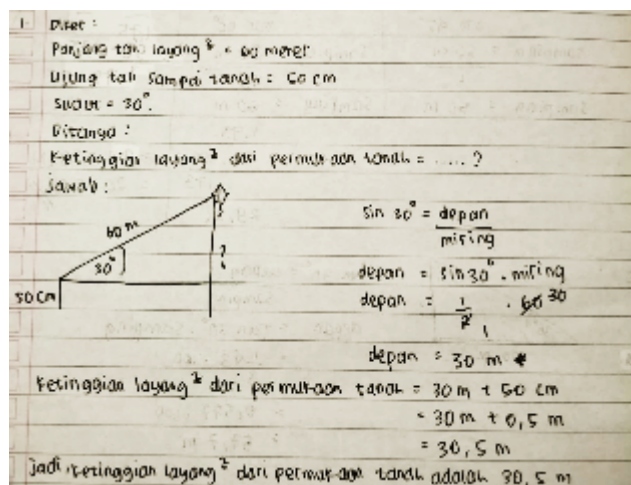 1. Diket :
Panjang tali layang² = 60 meter
Ujung tali sampai tanah = 50 cm
Sudut = 30°.
Ditanya :
Ketinggian layang² dari permukaan tanah = ..... ?
Jawab :
60 m
30°
?
50 cm
sin 30° = depan / miring
depan = sin 30° . miring
depan = 1/2 1 . 60 30
depan = 30 m
Ketinggian layang² dari permukaan tanah = 30 m + 50 cm
= 30 m + 0,5 m
= 30,5 m
Jadi, ketinggian layang² dari permukaan tanah adalah 30,5 m